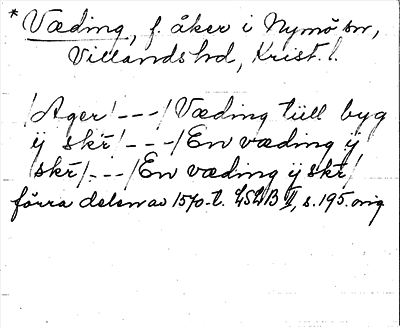 * Væding, f. åker i Nymö sn,
Villands hd, Krist. l.
/Ager/ --- / Væding tüll byg
ÿ skr̄/ --- / En væding ÿ
skr̄/ --- / En væding ÿ skr̄/
förra delen av 1570-t. LSLB II, s. 195. orig